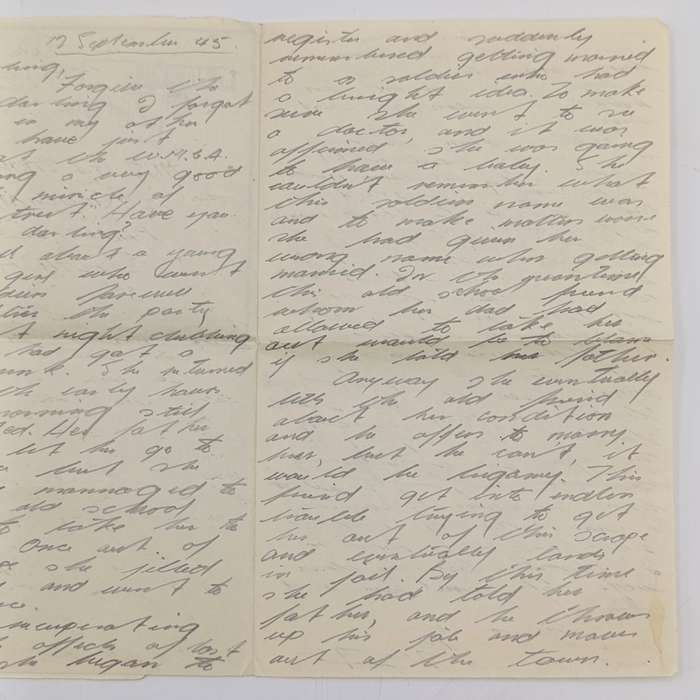 17 September 45.
ling,
Forgive me
darling I forgot
in my other
have just
at the W.M.S.A.
ing a very good
miracle of
Have you
darling?
all about a young
girl who went
farewell
the party
night clubbing
had got a
She returned
early hours
morning still
ed. Her father
let her go to
but she
mannaged to
old school
to take her to
Once out of
she jilted
and went to
recuperating
effects of last
she began to
register and suddenly
remembered getting married
to a soldier who had
a bright idea. To make
sure she went to see
a doctor, and it was
affirmed, she was going
to have a baby. She
couldn't remember what
this soldiers name was
and to make matters worse
she had given her
wrong name when getting
married. In the meantime
this old school friend
whom her dad had
allowed to take her
out would be to blame
if she told her father.
Anyway she eventually
tells the old friend
about her condition
and he offers to marry
her, but he can't, it
would be bigamy. This
friend get into endless
trouble trying to get
her out of this scrape
and eventually lands
in jail. By this time
she had told her
father, and he throws
up his job and moves
out of the town.